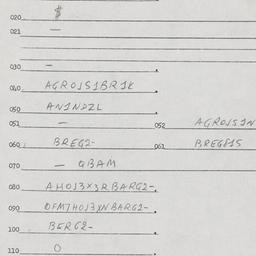 020 $
021 —
030 — .
040 AGROJS1BR1K .
050 AN1NDZL
051 — 052 AGROJS1N
060 BREG2- 061 BREG815
070 — GBAM
080 AHOJ3X3RBARG2- .
090 OFM7HOJ3XNBARG2- .
100 BERG2- .
110 O